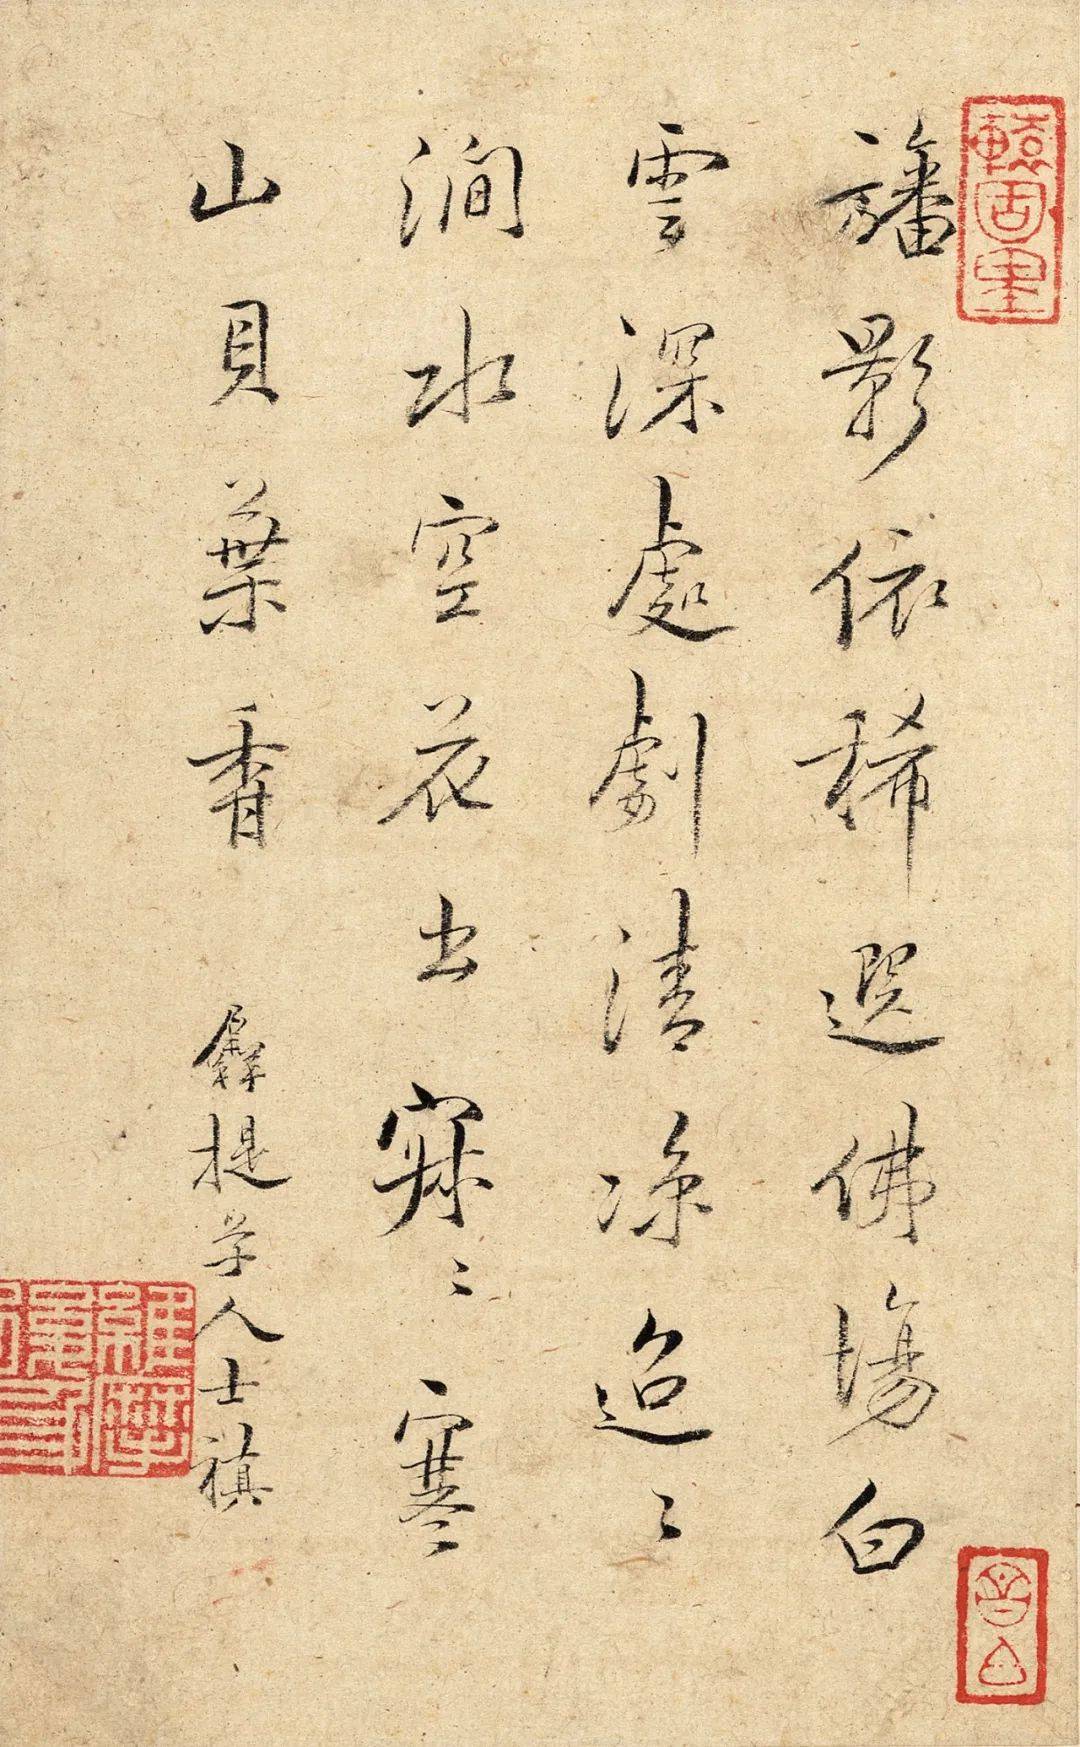 旛影依稀選佛場白
雲深處劇清凉迢〻
澗水空花出寂〻寒
山貝葉香
羼提學人士禛